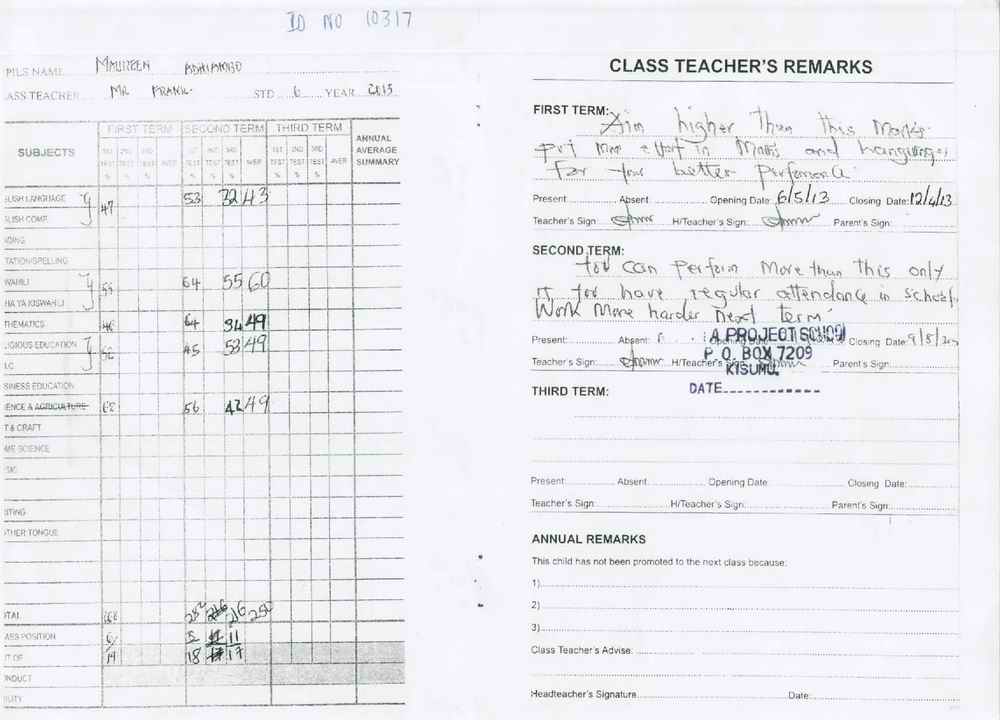 ID NO 10317
PILS NAME MAUREEN ADHIAMBO
ASS TEACHER MR FRANK. STD 6 YEAR 2013
SUBJECTS FIRST TERM SECOND TERM THIRD TERM ANNUAL AVERAGE SUMMARY
1ST TEST % 2ND TEST % 3RD TEST % AVER 1ST TEST % 2ND TEST % 3RD TEST % AVER 1ST TEST % 2ND TEST % 3RD TEST % AVER
LISH LANGUAGE 47 53 32 43
LISH COMP.
DING
TATION/SPELLING
WAHILI 55 64 55 60
HA YA KISWAHILI
THEMATICS 46 64 34 49
IGIOUS EDUCATION 52 45 53 49
I.C
SINESS EDUCATION
ENCE & AGRICULTURE 68 56 42 49
T & CRAFT
ME SCIENCE
SIC
ITING
THER TONGUE
TAL 268 282 216 216 250
ASS POSITION 6 5 11 11
T OF 19 18 17 17
NDUCT
CLASS TEACHER'S REMARKS
FIRST TERM: Aim higher Than this Marks.
Put More effort in Maths and languages
For your better performance.
Present Absent Opening Date 6/5/13 Closing Date: 12/4/13
Teacher's Sign H/Teacher's Sign: Parent's Sign:
SECOND TERM:
You can perform More than this only
if you have regular attendance in school.
Work More harder next term.
Present: Absent: Opening Date Closing Date: 9/8/2013
A PROJECT SCHOOL
P. O. BOX 7209
KISUMU.
DATE
Teacher's Sign: H/Teacher's Sign Parent's Sign:
THIRD TERM:
Present: Absent: Opening Date Closing Date:
Teacher's Sign: H/Teacher's Sign: Parent's Sign:
ANNUAL REMARKS
This child has not been promoted to the next class because:
1)
2)
3)
Class Teacher's Advise:
Headteacher's Signature Date: